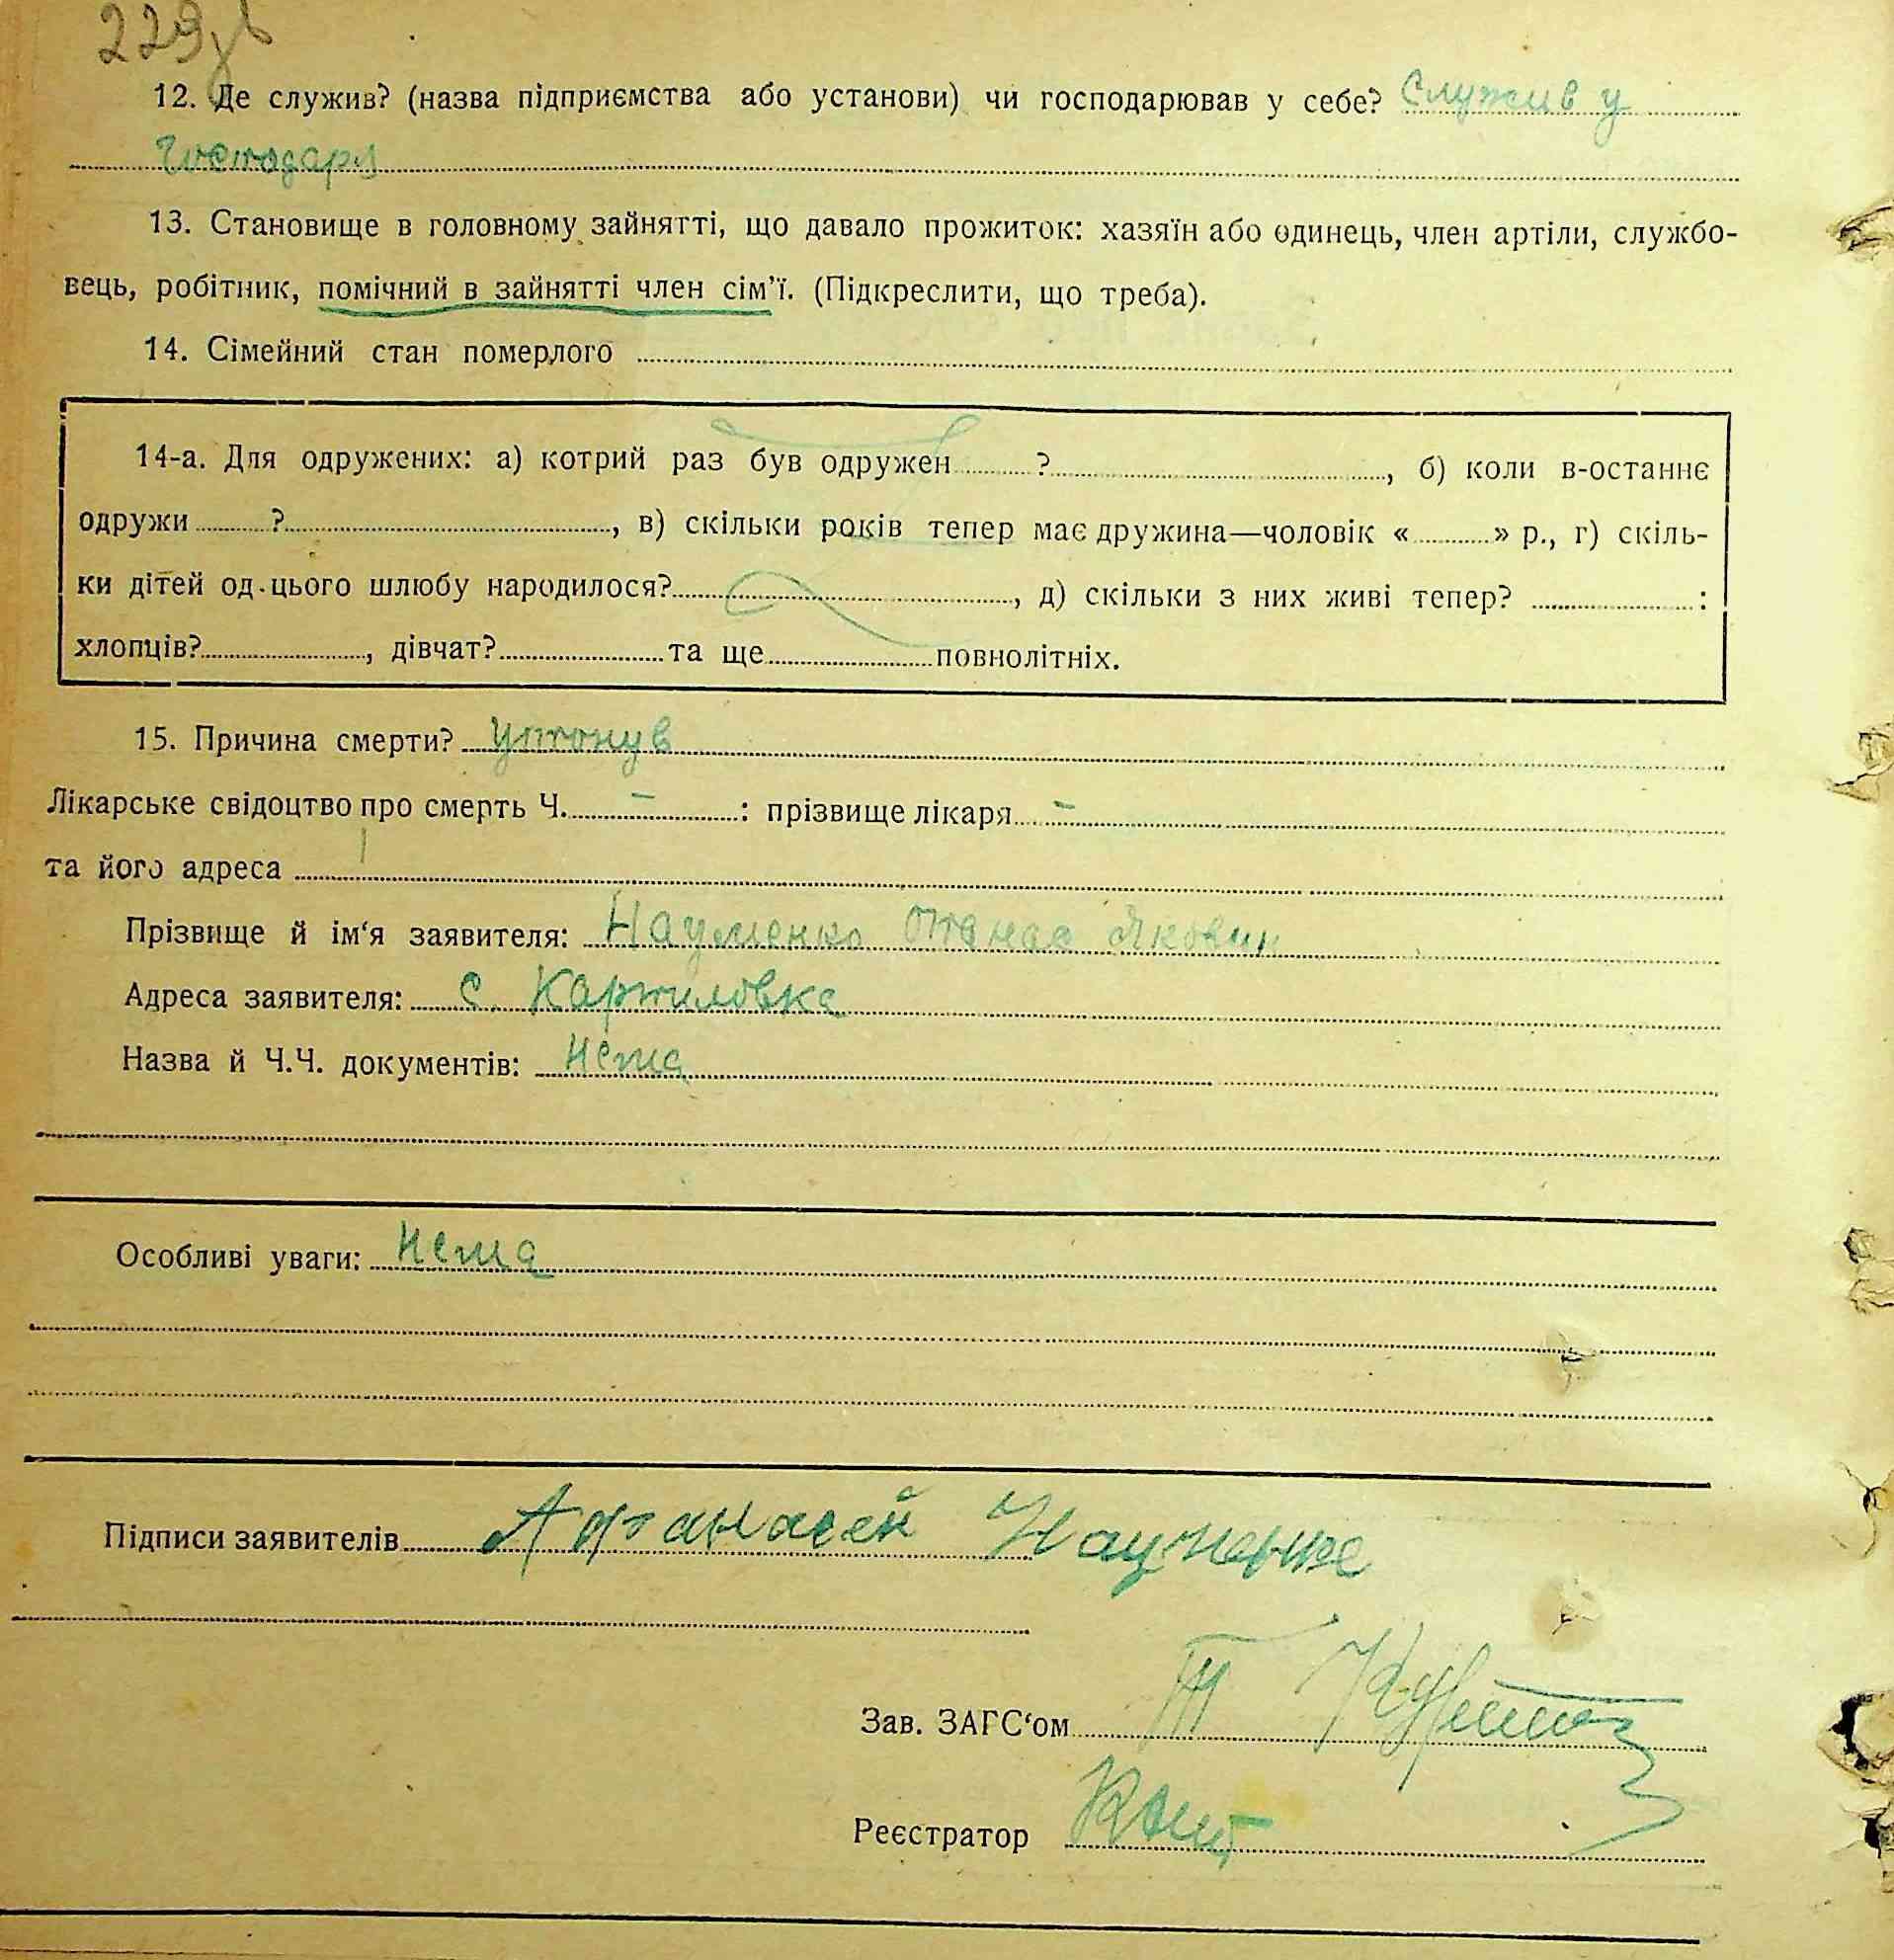 229
12. Де служив? (назва підприємства або установи) чи господарював у себе? Служив у
Господаря
13. Становище в головному зайнятті, що давало прожиток: хазяїн або одинець, член артіли, службо-
вець, робітник, помічний в зайнятті член сім'ї. (Підкреслити, що треба).
14. Сімейний стан померлого
14-а. Для одружених: а) котрий раз був одружен ? , б) коли в-останнє
одружи ? , в) скільки років тепер має дружина—чоловік « » р., г) скіль-
ки дітей од цього шлюбу народилося? , д) скільки з них живі тепер? :
хлопців? , дівчат? та ще повнолітніх.
15. Причина смерти? утонув
Лікарське свідоцтво про смерть Ч. – : прізвище лікаря –
та його адреса
Прізвище й ім'я заявителя: Науменко Опанас Якович
Адреса заявителя: с. Картиловка
Назва й Ч.Ч. документів: нема
Особливі уваги: нема
Підписи заявителів Афанасей Науменко
Зав. ЗАГС'ом
Реєстратор